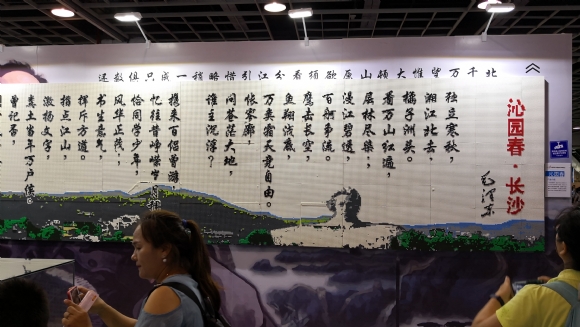 北千万望惟大顿山原欲须看分江引惜略稍一成只俱数还
沁园春·长沙
毛泽东
独立寒秋，
湘江北去，
橘子洲头。
看万山红遍，
层林尽染；
漫江碧透，
百舸争流。
鹰击长空，
鱼翔浅底，
万类霜天竞自由。
怅寥廓，
问苍茫大地，
谁主沉浮？
携来百侣曾游，
忆往昔峥嵘岁月稠。
恰同学少年，
风华正茂；
书生意气，
挥斥方遒。
指点江山，
激扬文字，
粪土当年万户侯。
曾记否，